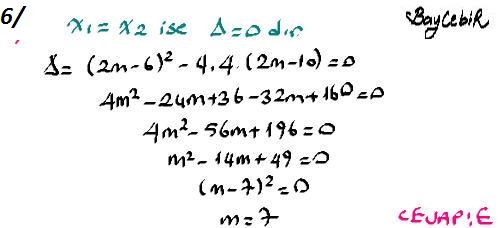 6/ x₁ = x₂ ise Δ=0 dır BayCebiR
Δ = (2m-6)² - 4.4.(2m-10) = 0
4m² - 24m + 36 - 32m + 160 = 0
4m² - 56m + 196 = 0
m² - 14m + 49 = 0
(m-7)² = 0
m = 7 CEVAP:E